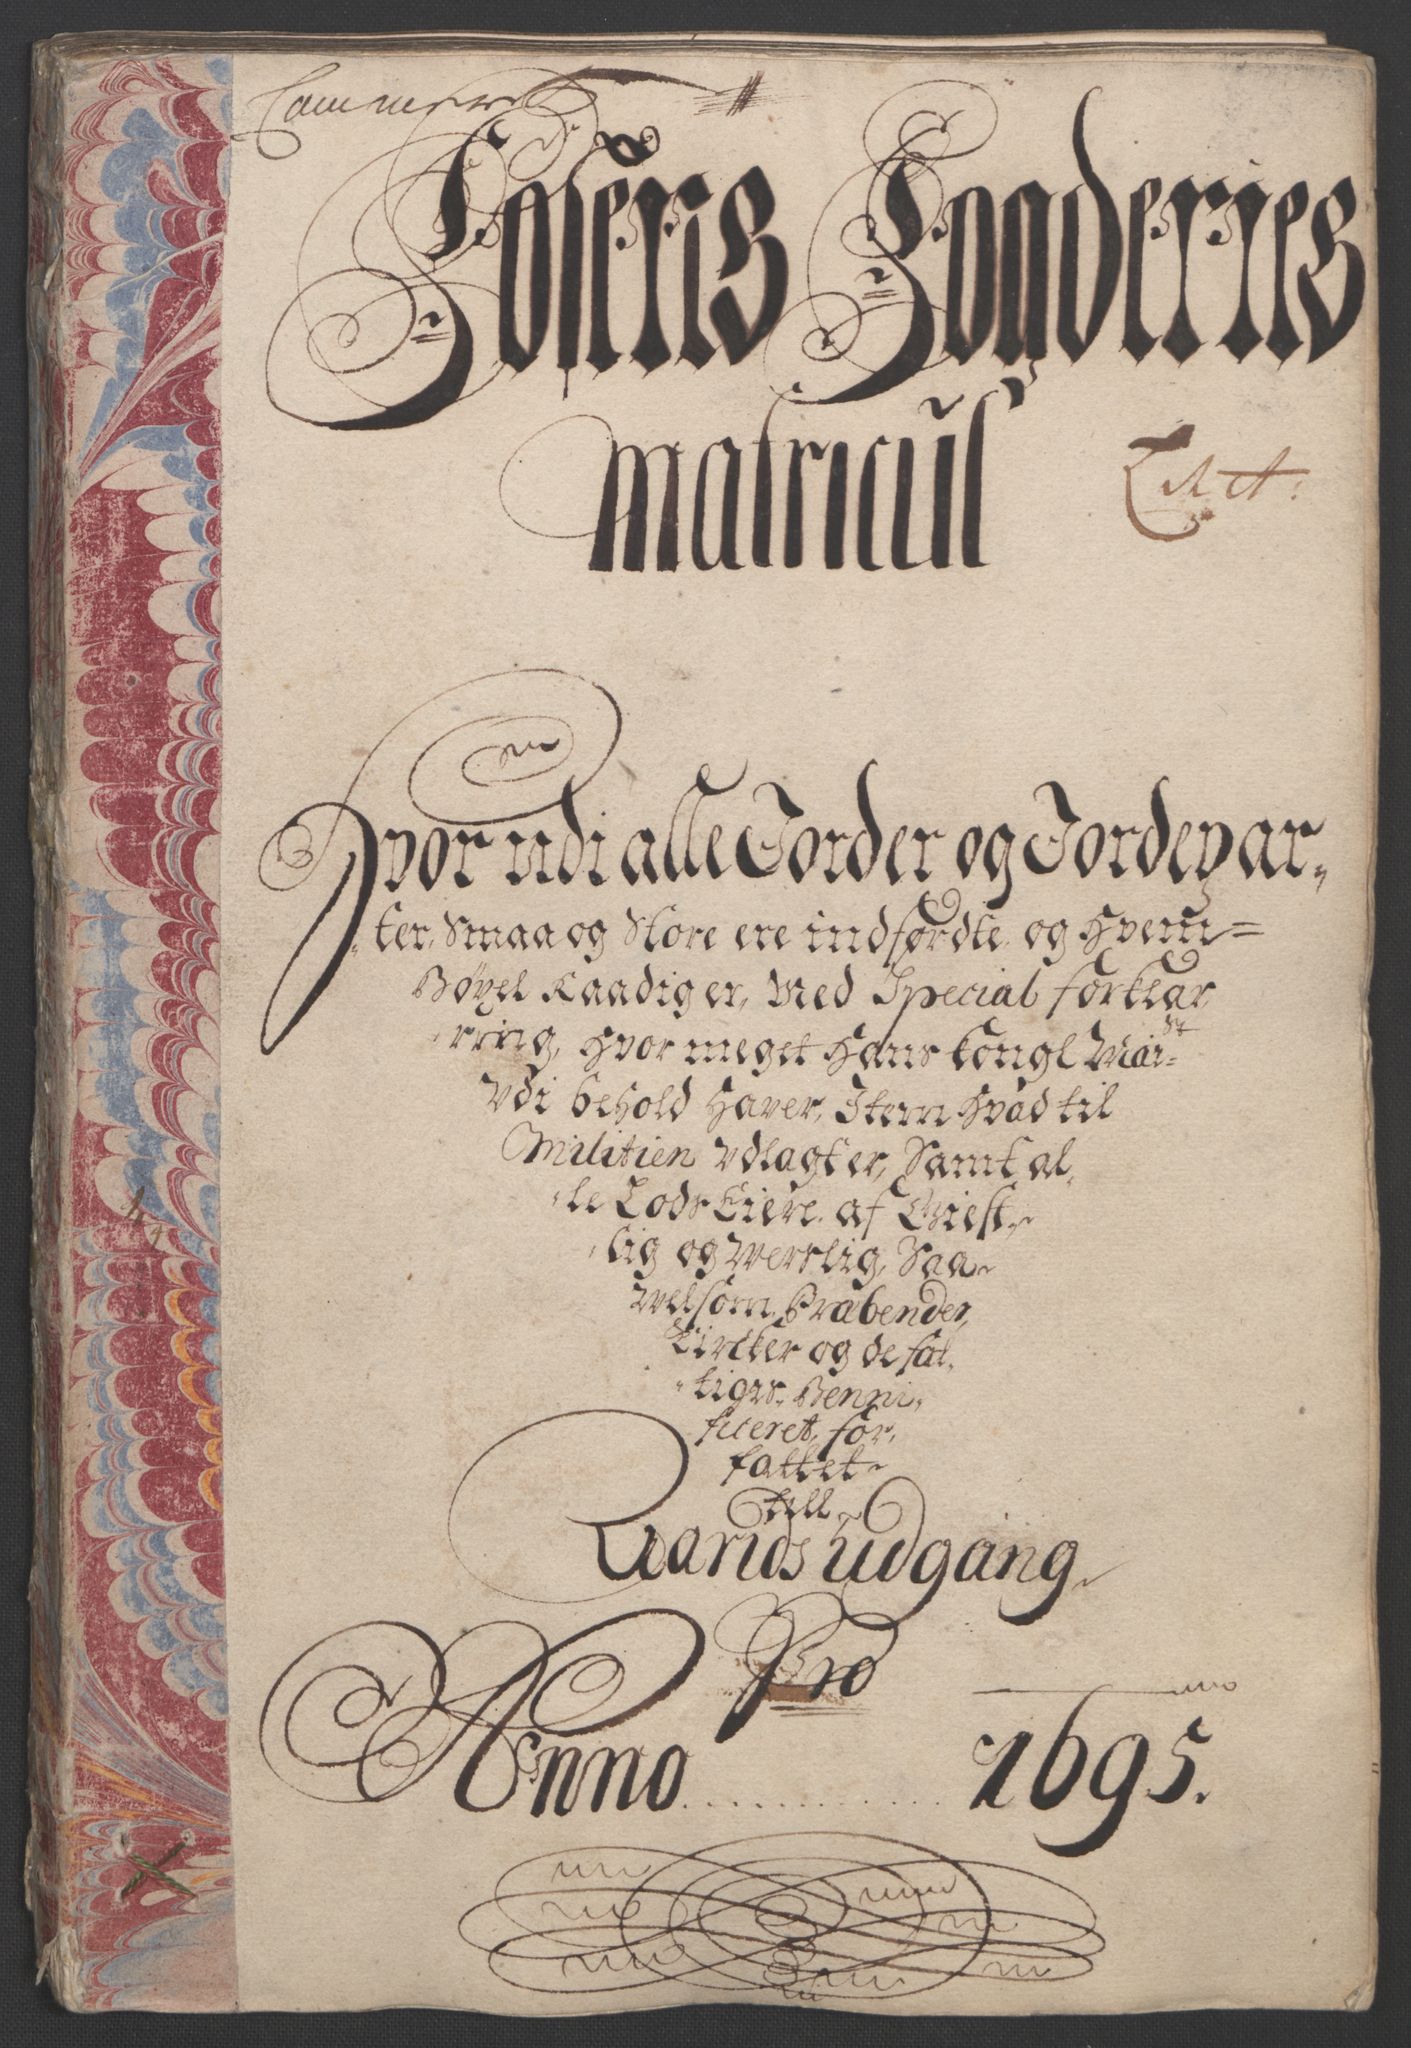 Foseris Fogderies
matricul
Hvor udi alle Jorder og Jordepar-
ter, Smaa og Store ere indførdte, og Hvem
Bøxel Raadig er, Med Special forklar
ring, Hvor meget Hans kongl Maiest
Vdi behold Haver, Item Hvad til
Militien Vdlagt er, Samt al
le Lods Eiere, af Giest-
lig og Werslig, Saa
velsom Præbender,
Kircker og de fat
tiges Benni
ficeret, for
fattet
till
Aarids üdgang
Pro
Anno . . . . . . . . . . 1695.